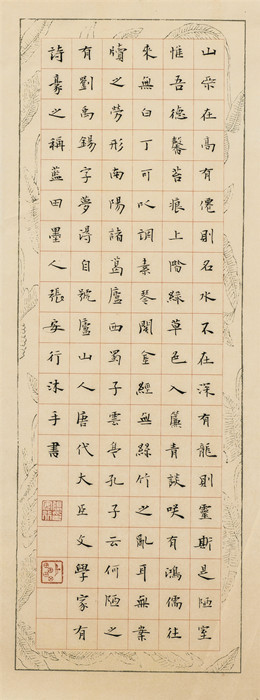 山不在高有僊則名水不在深有龍則靈斯是陋室
惟吾德馨苔痕上階綠草色入簾青談咲有鴻儒往
來無白丁可以調素琴閱金經無絲竹之亂耳無案
牘之勞形南陽諸葛廬西蜀子雲亭孔子云何陋之
有劉禹錫字夢得自號廬山人唐代大臣文學家有
詩豪之稱藍田墨人張安行沐手書